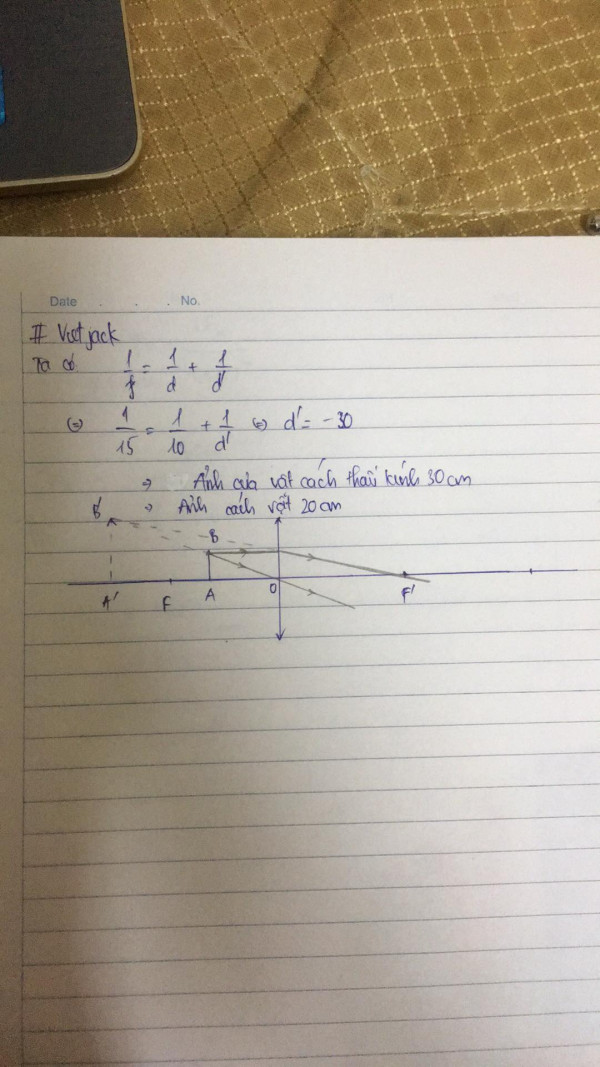 Date . . . No.
# Vietjack
Ta có 1/f = 1/d + 1/d'
(=) 1/15 = 1/10 + 1/d' (=) d' = -30
=> Ảnh của vật cách thấu kính 30 cm
=> Ảnh cách vật 20 cm
B' B
A' F A O F'